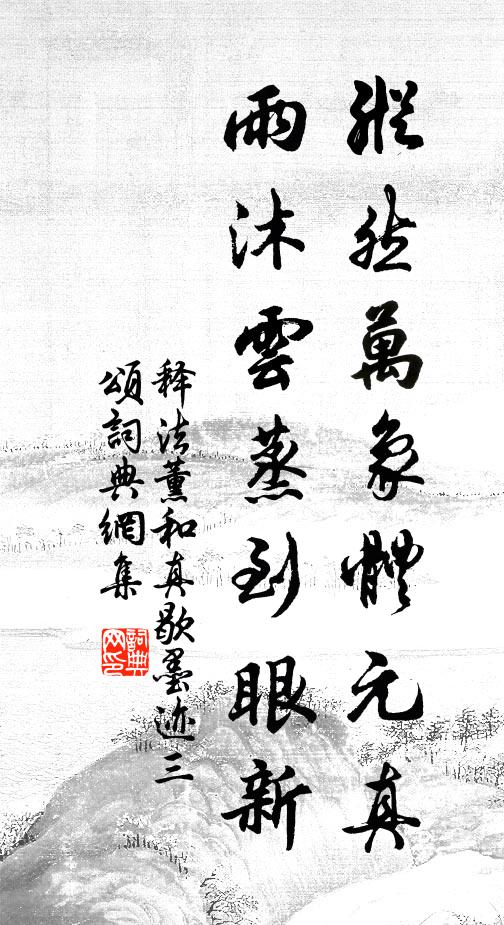 縱然萬象體元真
雨沐雲蒸到眼新
释法薰和真歇墨迹三
頌詞典網集
詞典网印